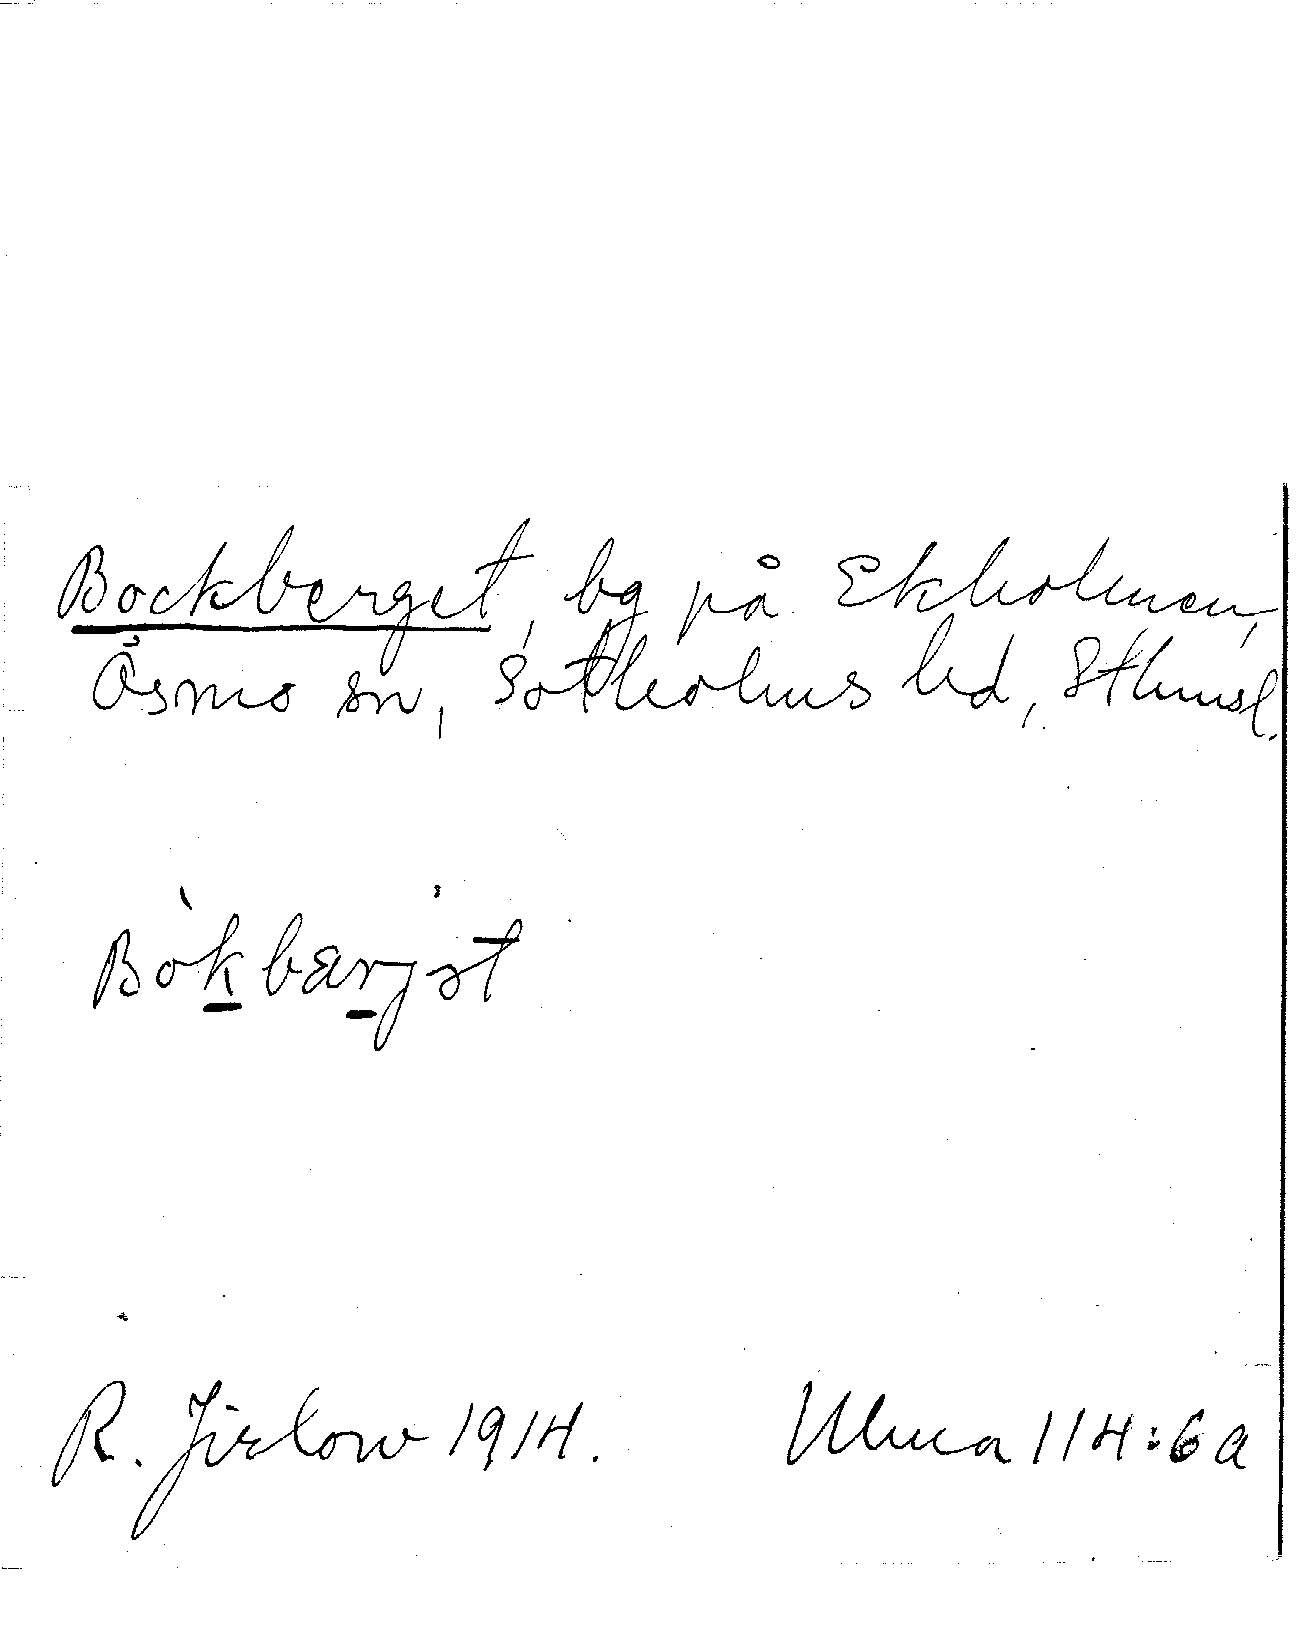 Bockberget, bg på Ekholmen,
Ösmo sn, Sotholms hd, Sthmsl.
Bòkbærjət
R. Jirlow 1914. Ulma 114:6a